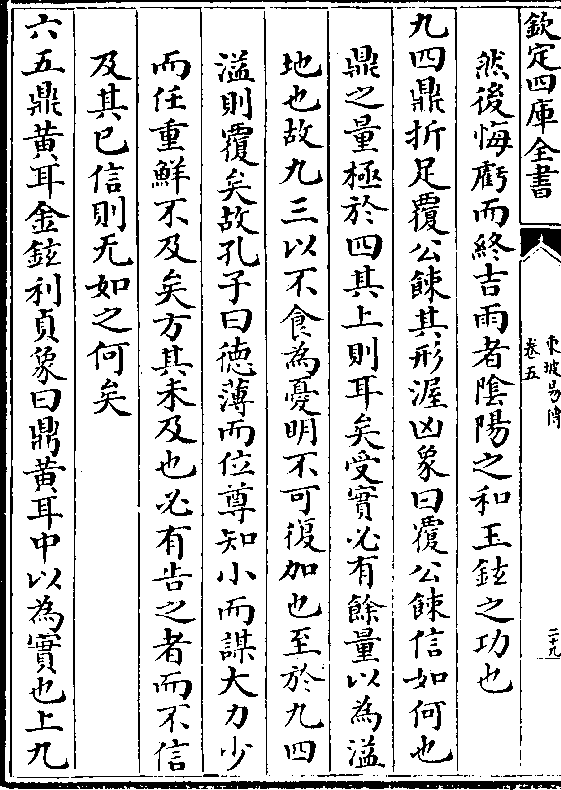 欽定四庫全書
東坡易傳
卷五
二十九
然後悔虧而終吉雨者陰陽之和玉鉉之功也
九四鼎折足覆公餗其形渥凶象曰覆公餗信如何也
鼎之量極於四其上則耳矣受實必有餘量以為溢
地也故九三以不食為憂明不可復加也至於九四
溢則覆矣故孔子曰德薄而位尊知小而謀大力少
而任重鮮不及矣方其未及也必有告之者而不信
及其已信則无如之何矣
六五鼎黃耳金鉉利貞象曰鼎黃耳中以為實也上九